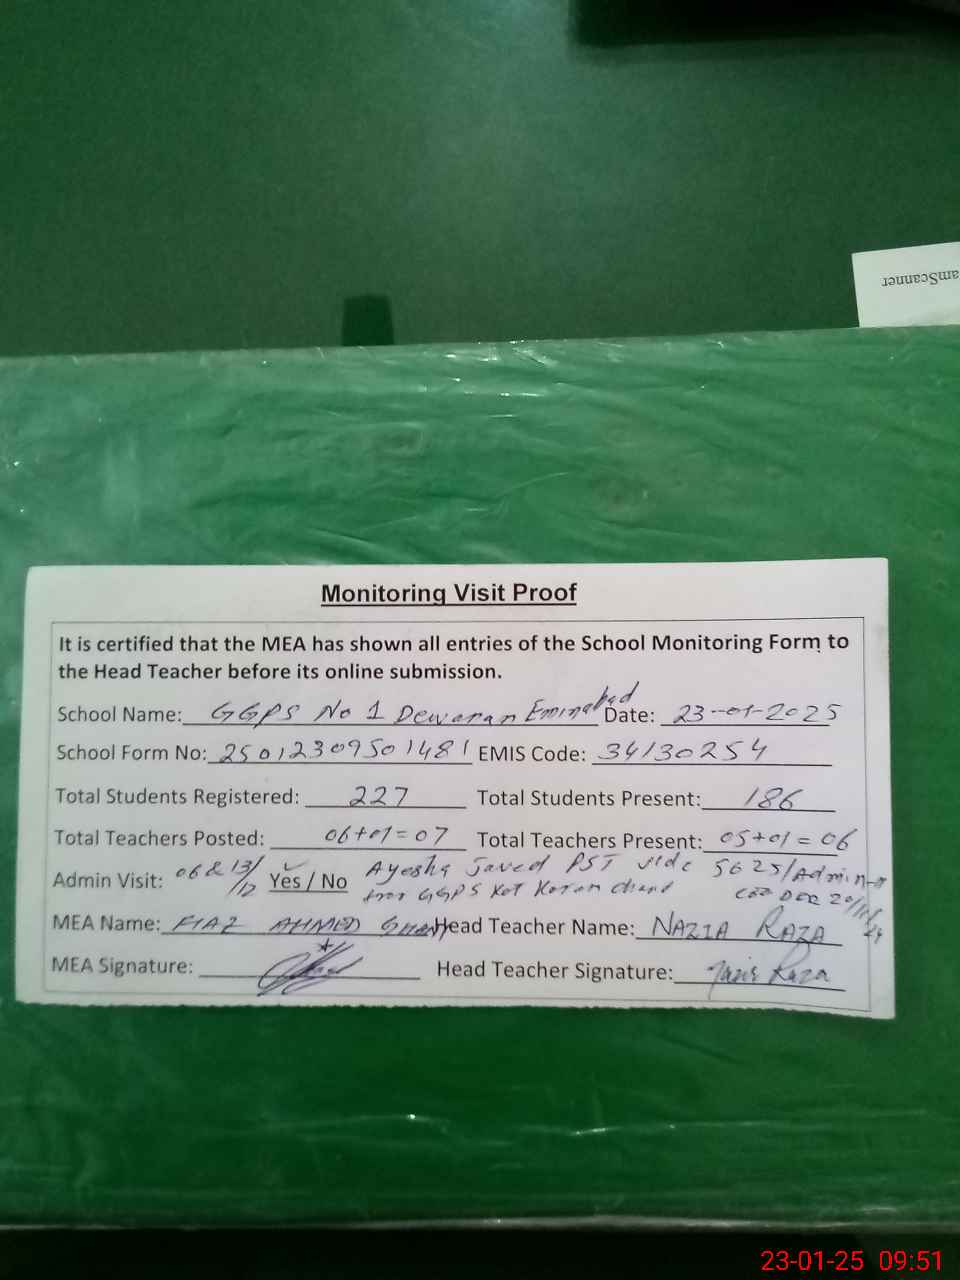 amScanner
Monitoring Visit Proof
It is certified that the MEA has shown all entries of the School Monitoring Form to
the Head Teacher before its online submission.
School Name: GGPS No 1 Dewanan Eminabad Date: 23-01-2025
School Form No: 25012309501481 EMIS Code: 34130254
Total Students Registered: 227 Total Students Present: 186
Total Teachers Posted: 06+01=07 Total Teachers Present: 05+01=06
Admin Visit: 06 & 13/12 Yes / No Ayesha Javed PST vide 5625/Admin-
from GGPS Kot Karam Chand
MEA Name: FIAZ AHMED Head Teacher Name: NAZIA RAZA
MEA Signature: Head Teacher Signature: Nazia Raza
23-01-25 09:51